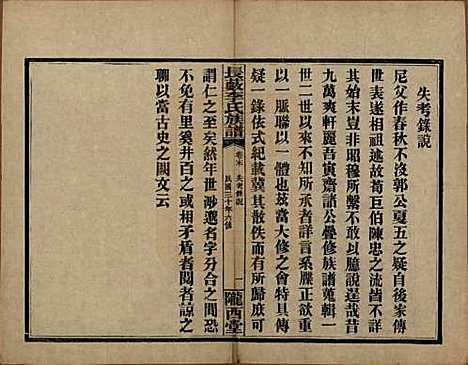 失考錄說
尼父作春秋不沒郭公夏五之疑自後家傳
世表遞相祖述故荀巨伯陳忠之流皆不詳
其始末豈非氏穆所繫不敢以臆說逞哉昔
九萬爽軒麗吾寅齋諸公疊修族譜蒐輯一
世二世以不知所承者詳言系牒正欲重
以一脈聯以一體也茲當大修之會特具傳
疑一錄依式紀載冀其散佚而有所歸庶可
長鼓李氏族譜
卷末 失考錄說
民國三十年六修
一
隴西堂
謂仁之至矣然年世渺遐名字分合之間恐
不免有里奚井百之訛或相矛盾者閱者諒之
聊以當古史之闕文云